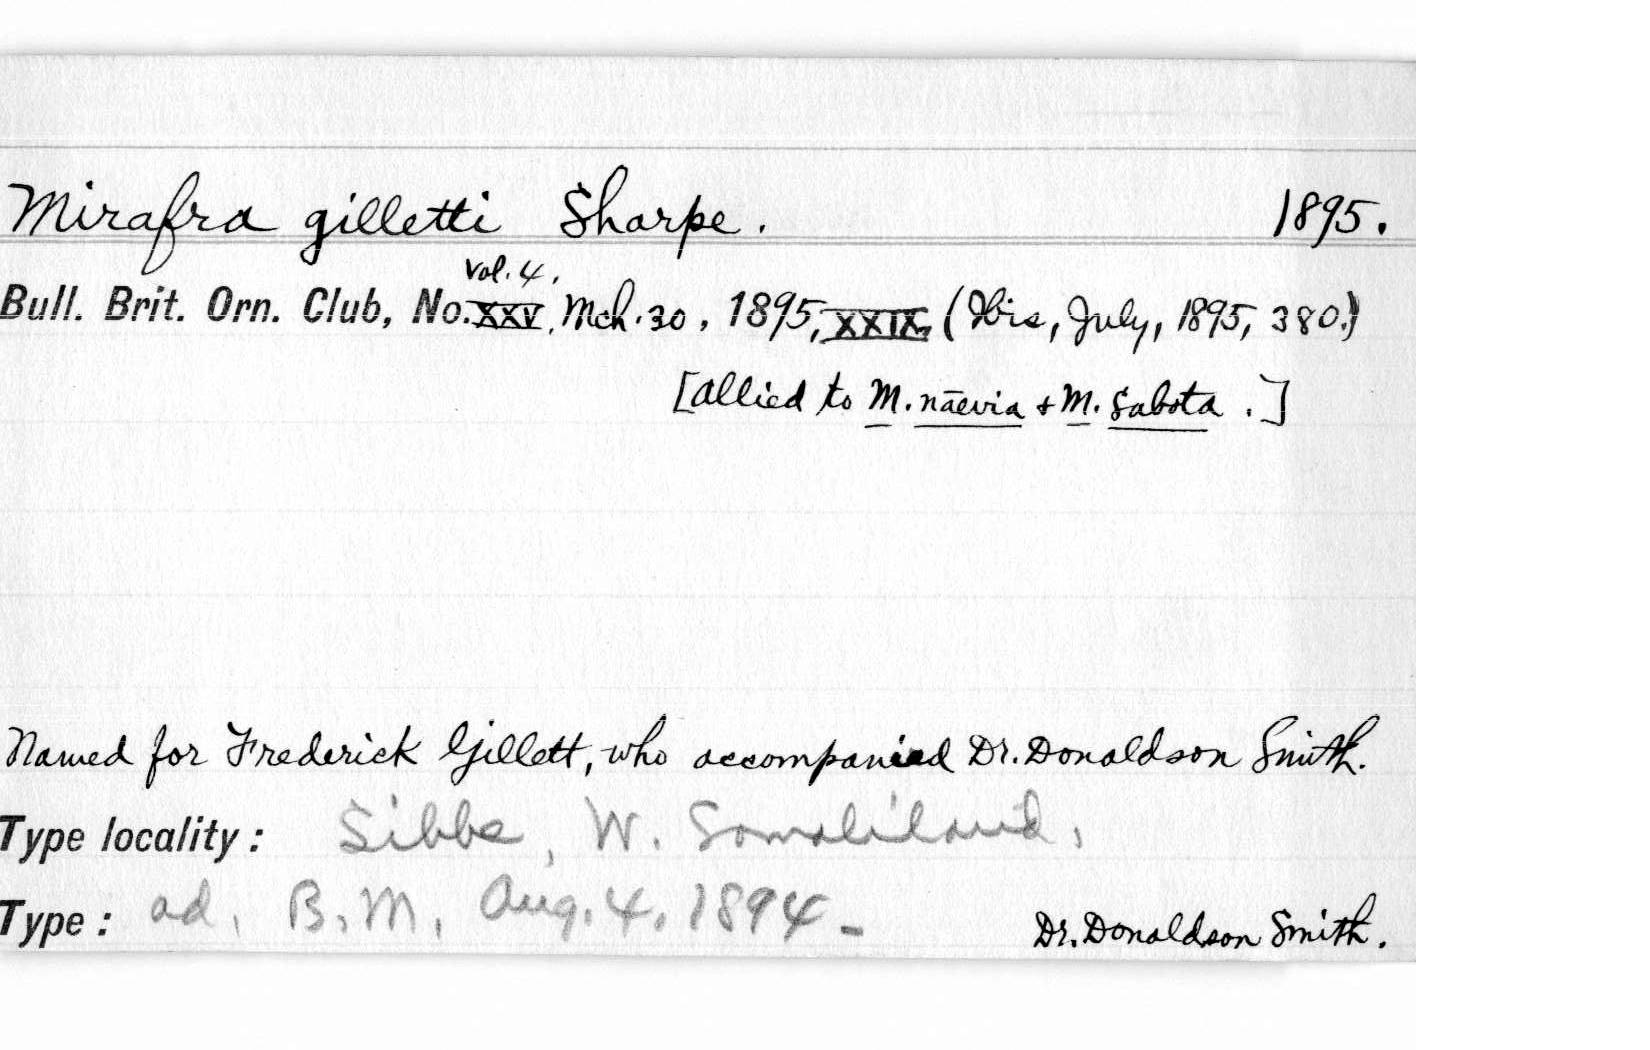 Mirafra gilletti Sharpe. 1895.
Vol. 4,
Bull. Brit. Orn. Club, No. XXV, Mch. 30, 1895, XXIX, (Ibis, July, 1895, 380.)
[allied to M. nāevia + M. sabota.]
Named for Frederick Gillett, who accompanied Dr. Donaldson Smith.
Type locality: Sibbe, W. Somaliland,
Type: ad. B.M. Aug. 4, 1894 - Dr. Donaldson Smith.